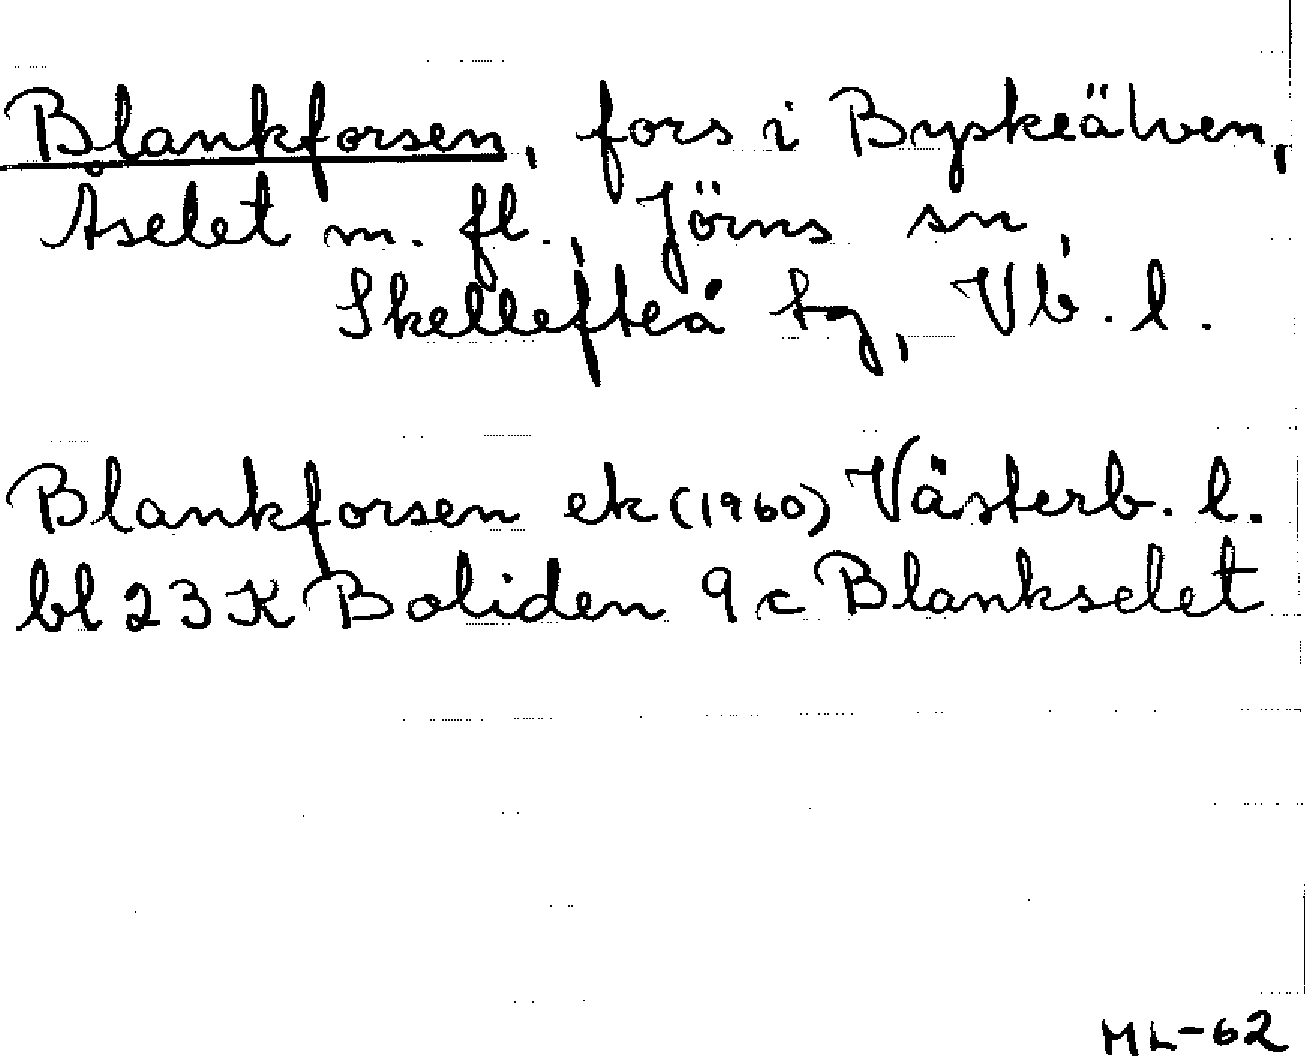 Blankforsen, fors i Byskeälven,
Åselet m. fl., Jörns sn,
Skellefteå tg, Vb. l.
Blankforsen ek (1960) Västerb. l.
bl 23 K Boliden 9 c Blankselet
ML-62